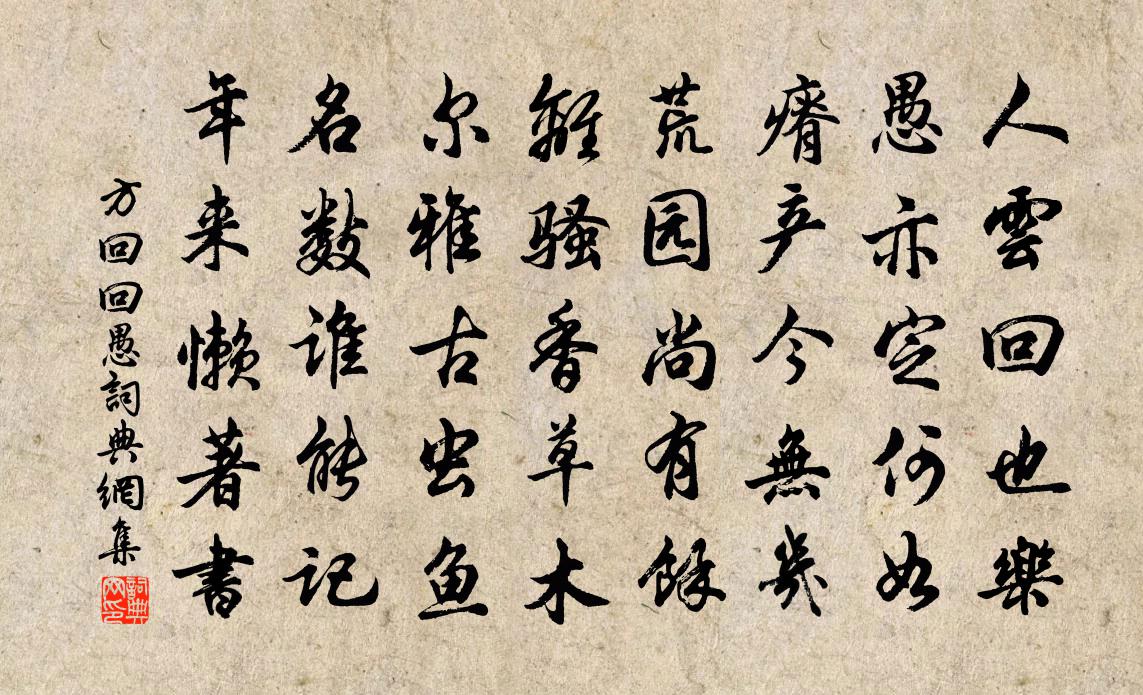 人雲回也樂
愚亦定何如
瘠产今無幾
荒园尚有餘
離骚香草木
尔雅古虫鱼
名数谁能记
年来懒著書
方回回愚詞典網集
詞典网印